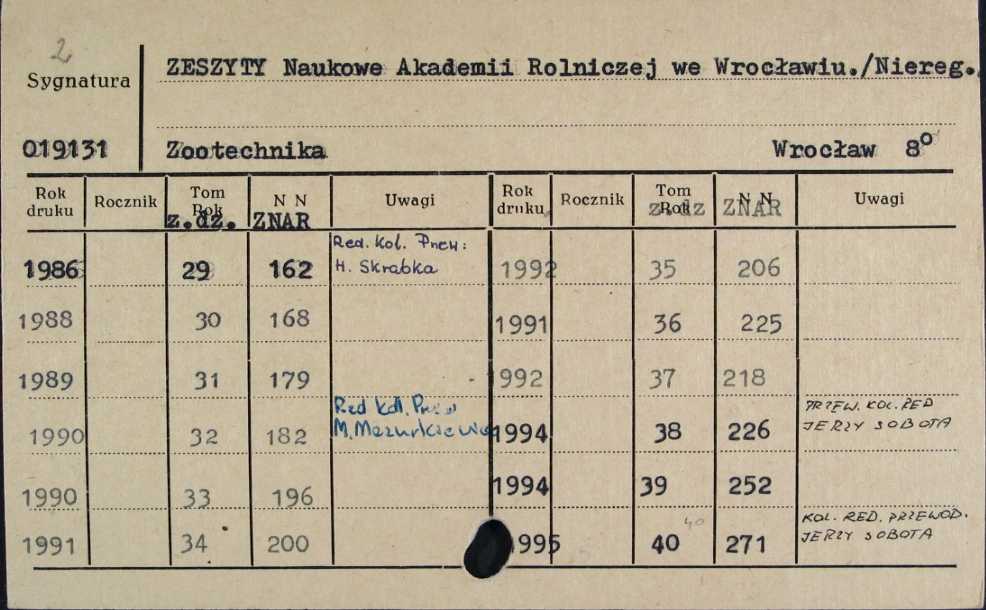 2
ZESZYTY Naukowe Akademii Rolniczej we Wrocławiu./Niereg.
Sygnatura
019131 Zootechnika Wrocław 8°
Rok druku Rocznik Tom Rok N N Uwagi Rok druku Rocznik Tom Rok N N Uwagi
z.dz. ZNAR z.dz ZNAR
1986 29 162 Red. kol. Przew: H. Skrabka 1992 35 206
1988 30 168 1991 36 225
1989 31 179 1992 37 218
1990 32 182 Red kol. Przew M. Mazurkiewicz 1994 38 226 PRZEW. KOL. RED JERZY SOBOTA
1990 33 196 1994 39 252
1991 34 200 1995 40 40 271 KOL. RED. PRZEWOD. JERZY SOBOTA